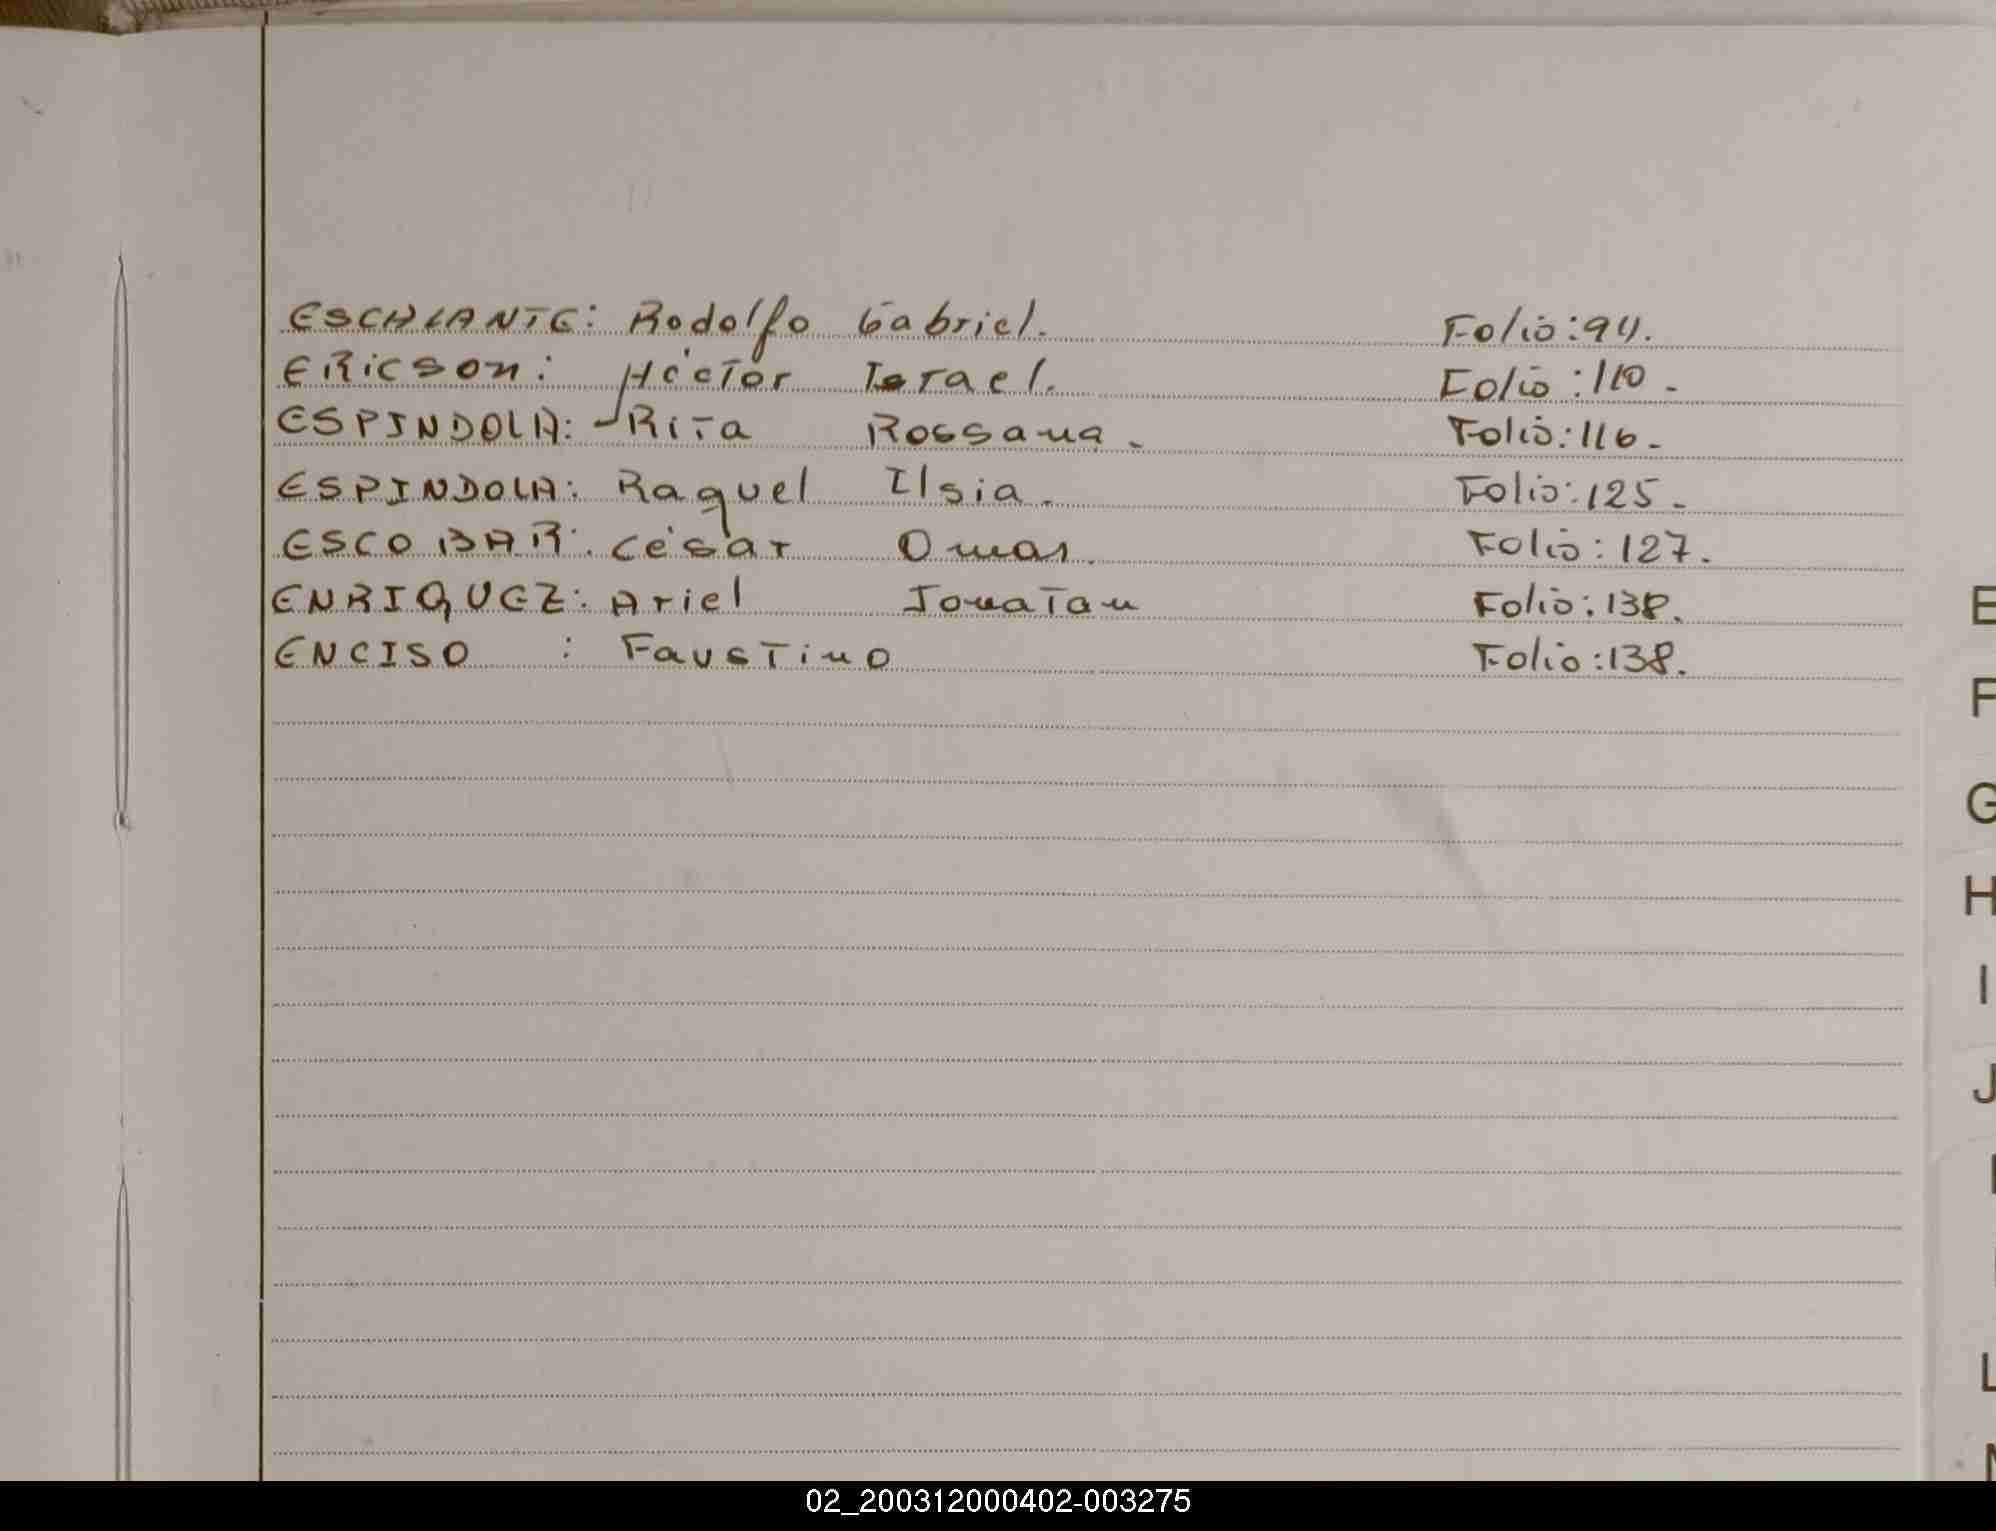 ESCALANTE: Rodolfo Gabriel. Folio: 94.
ERICSON: Héctor Israel. Folio: 110.
ESPINDOLA: Rita Rossana. Folio: 116.
ESPINDOLA: Raquel Ilsia. Folio: 125.
ESCOBAR: César Omar. Folio: 127.
ENRIQUEZ: Ariel Jonatan Folio: 138.
ENCISO : Faustino Folio: 138.
E
F
G
H
I
J
L
02_200312000402-003275